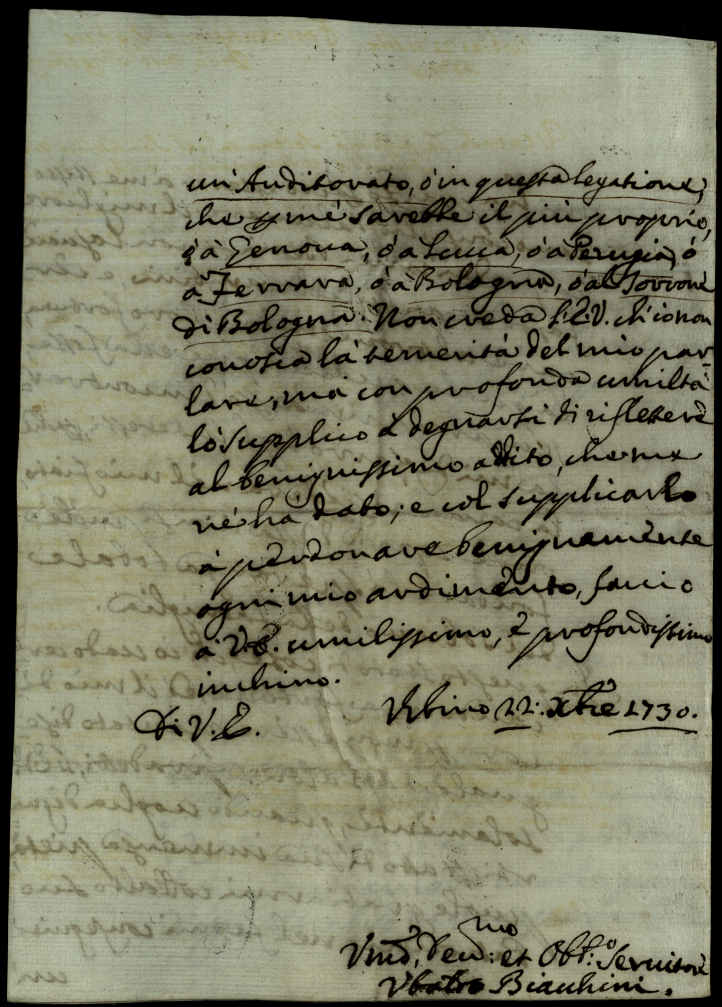 un' Auditorato, ó in questa legatione,
che p mé sarebbe il più proprio,
ó á Genova, ó a Lucca, ó a Perugia, ó
a Ferrara, ó á Bologna, ó al Torrone
di Bologna. Non creda l'E.V. ch' io non
conosca la temerità del mio par-
lare, má con profonda umiltá
ló supplico á degnarsi di riflettere
al benignissimo adito, che me
né há dato; e col supplicarlo
á perdonare benignamente
ogni mio ardimento, faccio
á V.E. umilissimo, e profondissimo
inchino.
Di V.E. Urbino 22: Xbre 1730.
Umo, Devmo: et Obl:o Servitore
Bianchini.